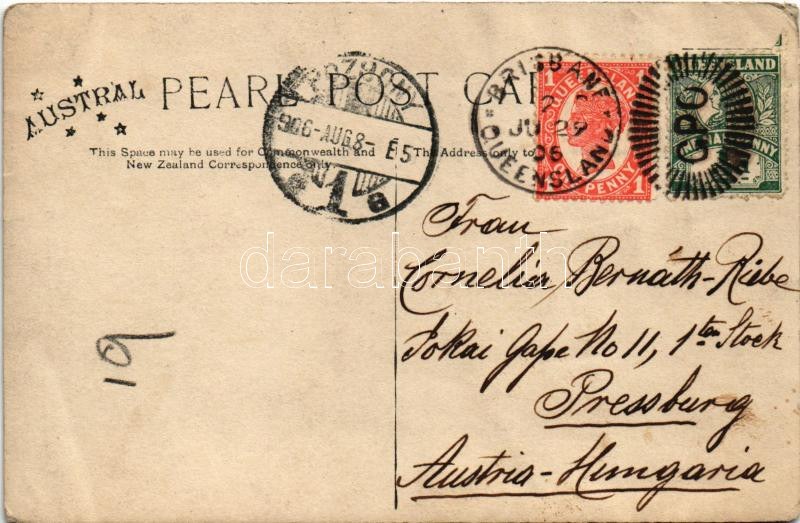 AUSTRAL PEARL POST CARD
This Space may be used for Commonwealth and
New Zealand Correspondence only.
The Address only to
BRISBANE
JU 29
06
QUEENSLAND
POZSONY
906-AUG8-E5
B
1
1
PENNY
1
1
QUEENSLAND
GPO
PENNY
Frau
Cornelia Bernáth-Riebe
Jokai Gaße No 11, 1ten Stock
Pressburg
Austria-Hungaria
19
darabanth